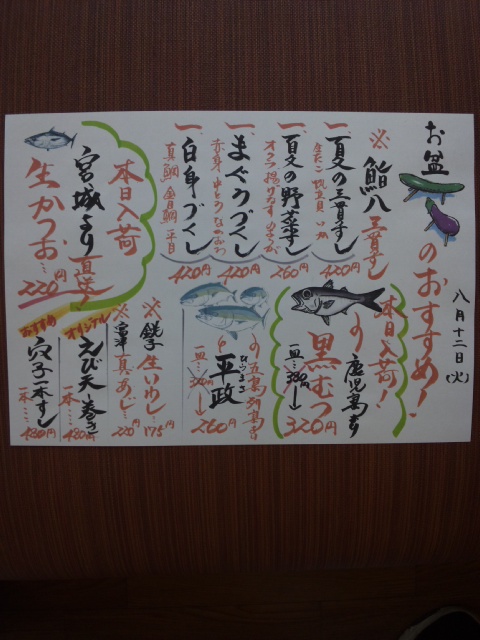 お盆
のおすすめ!
八月十二日(火)
※鮨八三貫ずし
一、夏の三貫ずし
420円
一、夏の野菜ずし
260円
一、まぐろづくし
赤身 中とろ
420円
一、白身づくし
真鯛 金目鯛 平目
420円
本日入荷
宮城より直送!
生かつお…220円
本日入荷!
鹿児島より
黒むつ
一皿
320円
ひらまさ
平政
一皿
260円
※銚子 生いわし
175円
真あじ
220円
オリジナル
えび天巻き
一本…480円
おすすめ
穴子一本ずし
一本…480円